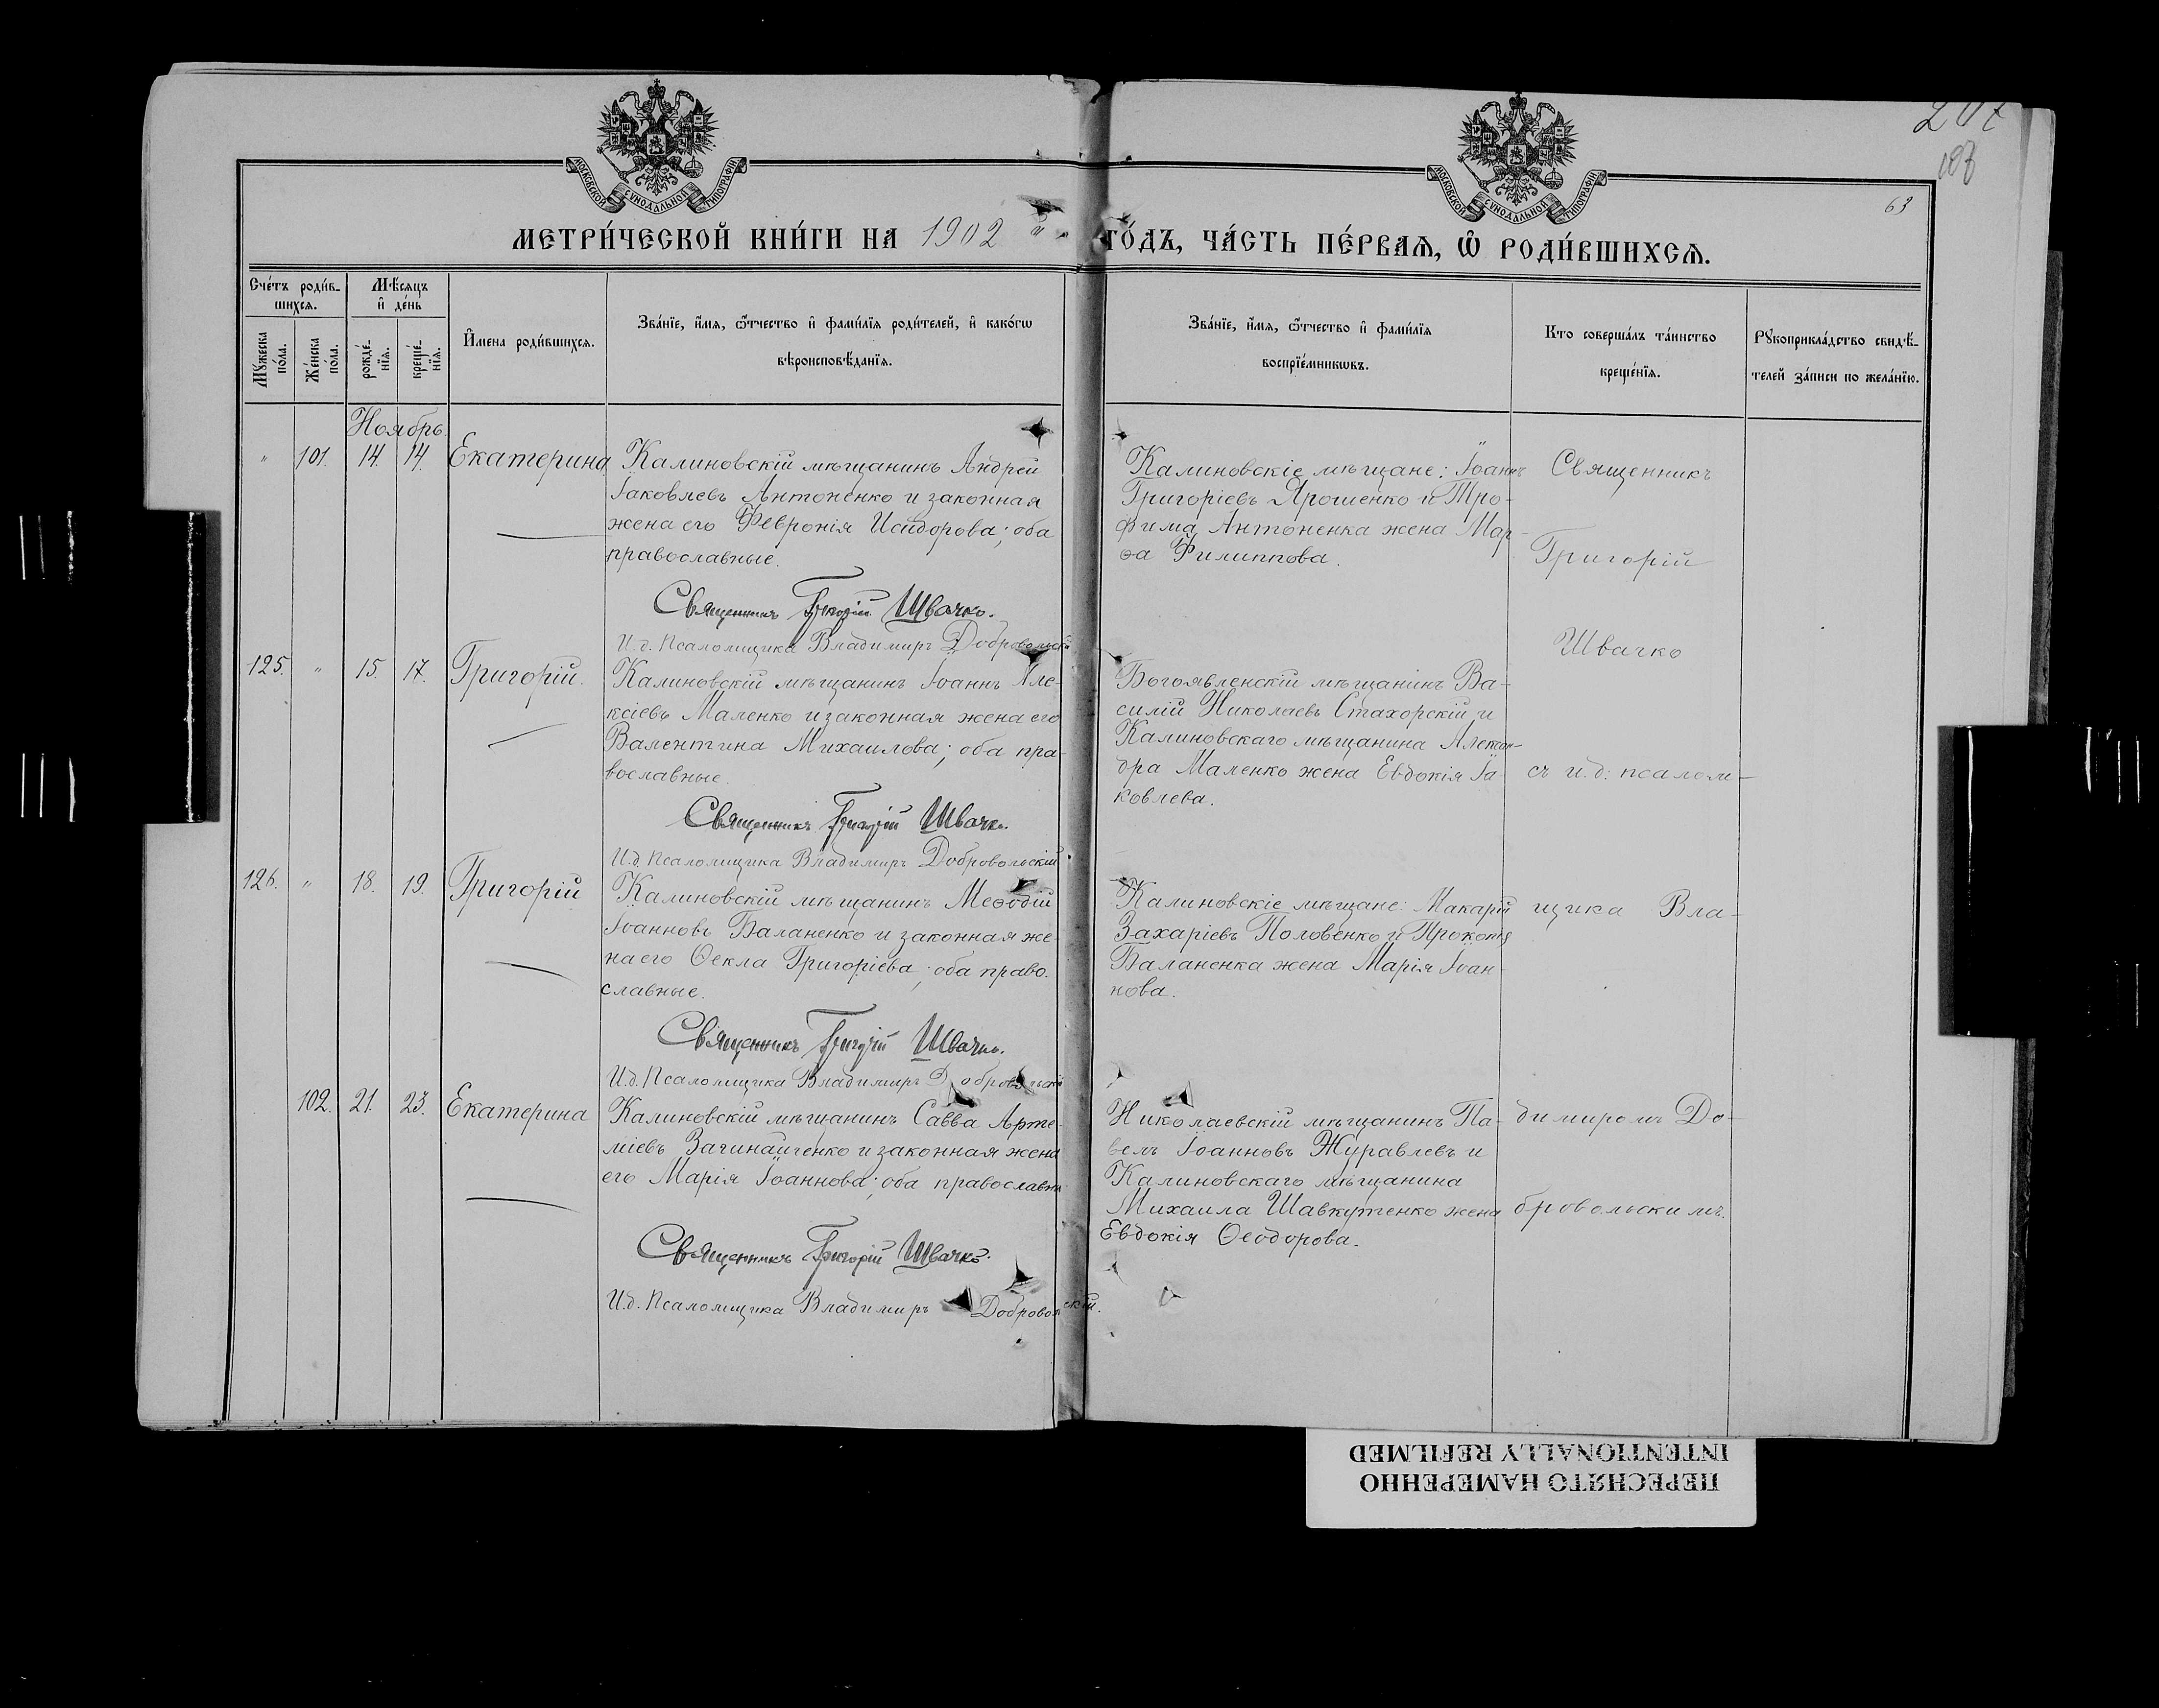 МОСКОВСКОЙ СѴНОДАЛЬНОЙ ТИПОГРАФІИ
МОСКОВСКОЙ СѴНОДАЛЬНОЙ ТИПОГРАФІИ
103
63
МЕТРИ́ЧЕСКОЙ КНИ́ГИ НА 1902 й ГО́ДЪ, ЧА́СТЬ ПЕ́РВАѦ, Ѡ҆ РОДИ́ВШИХСѦ.
Сче́тъ роди́в-
шихсѧ.
Мѣ́сѧцъ
и҆ де́нь
Мꙋ́жеска
по́ла.
Же́нска
по́ла.
рожде́-
нїѧ.
креще́-
нїѧ.
И҆мена роди́вшихсѧ.
Зва́нїе, и҆́мѧ, ѻ҆́тчество и҆ фами́лїѧ роди́телей, и҆ како́гѡ
вѣроисповѣ́данїѧ.
Зва́нїе, и҆́мѧ, ѻ҆́тчество и҆ фами́лїѧ
воспрїе́мникѡвъ.
Кто соверша́лъ та́инство
креще́нїѧ.
Рꙋкоприкла́дство свидѣ́-
телей за́писи по жела́нїю.
Ноябрь.
" 101. 14. 14. Екатерина
Калиновскій мѣщанинъ Андрей
Іаковлевъ Антоненко и законная
жена его Февронія Исидорова; оба
православные.
Священникъ Григорій Швачко.
И. д. Псаломщика Владимиръ Добровольскій
Калиновскіе мѣщане: Іоаннъ
Григоріевъ Ярошенко и Тро-
фима Антоненка жена Мар-
ѳа Филиппова.
Священникъ
Григорій
Швачко
125. " 15. 17. Григорій.
Калиновскій мѣщанинъ Іоаннъ Але-
ксіевъ Маленко и законная жена его
Валентина Михаилова; оба пра-
вославные.
Священникъ Григорій Швачко.
И.д. Псаломщика Владимиръ Добровольскій
Богоявленскій мѣщанинъ Ва-
силій Николаевъ Стахорскій и
Калиновскаго мѣщанина Алексан-
дра Маленко жена Евдокія Іа-
ковлева.
съ и. д. псалом-
126. " 18. 19. Григорій
Калиновскій мѣщанинъ Меѳодій
Іоанновъ Баланенко и законная же-
на его Ѳекла Григоріева; оба право-
славные.
Священникъ Григорій Швачко.
И.д. Псаломщика Владимиръ Добровольскій
Калиновскіе мѣщане: Макарій
Захаріевъ Половенко и Прокопія
Баланенка жена Марія Іоан-
нова.
щика Вла-
102. 21. 23. Екатерина
Калиновскій мѣщанинъ Савва Арте-
міевъ Зачинайченко и законная жена
его Марія Іоаннова; оба православн
Священникъ Григорій Швачко.
И.д. Псаломщика Владимиръ Добровольскій.
Николаевскій мѣщанинъ Па-
велъ Іоанновъ Журавлевъ и
Калиновскаго мѣщанина
Михаила Шавкутенко жена
Евдокія Ѳеодорова.
димиромъ До-
бровольскимъ.
ПЕРЕСНЯТО НАМЕРЕННО
INTENTIONALLY REFILMED